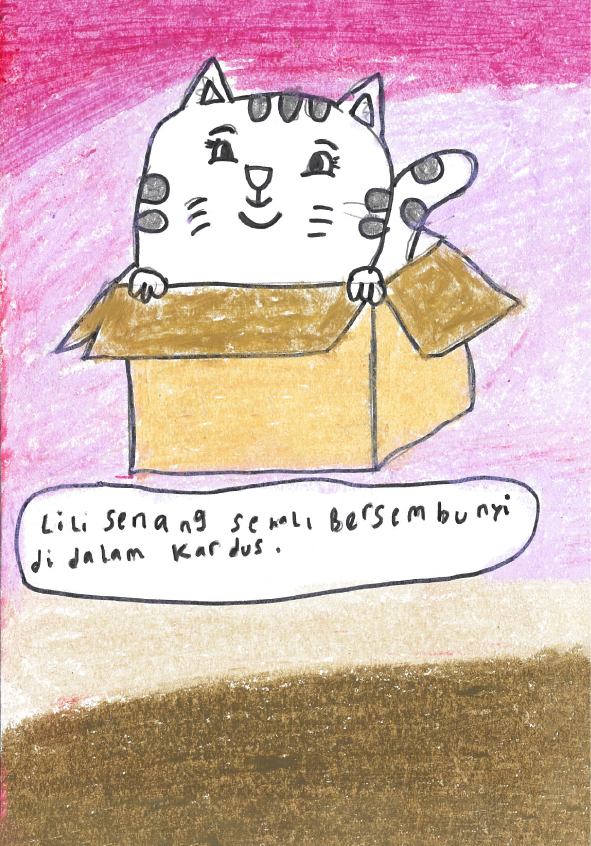 LiLi senang sekali Bersembunyi
di dalam Kardus.